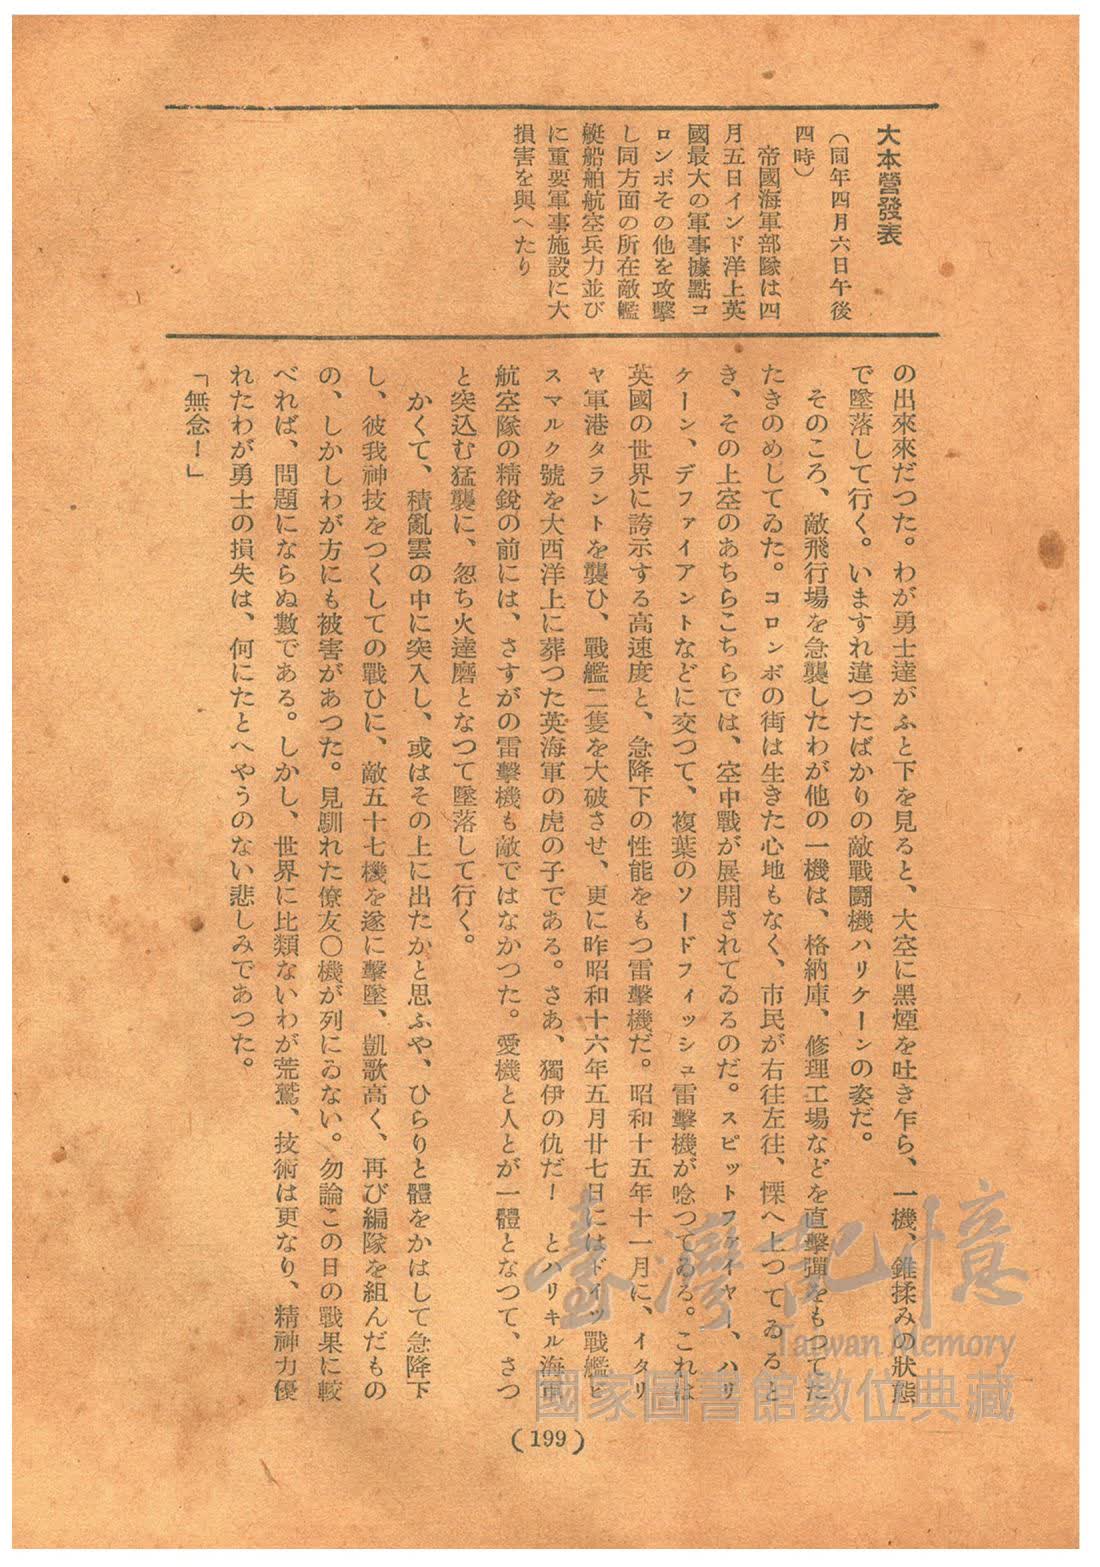 大本營發表
（同年四月六日午後
四時）
帝國海軍部隊は四
月五日インド洋上英
國最大の軍事據點コ
ロンボその他を攻擊
し同方面の所在敵艦
艇船舶航空兵力並び
に重要軍事施設に大
損害を與へたり
の出來來だつた。わが勇士達がふと下を見ると、大空に黑煙を吐き乍ら、一機、錐揉みの狀態
で墜落して行く。いますれ違つたばかりの敵戰鬪機ハリケーンの姿だ。
そのころ、敵飛行場を急襲したわが他の一機は、格納庫、修理工場などを直擊彈をもつてた
たきのめしてゐた。コロンボの街は生きた心地もなく、市民が右往左往、慄へ上つてゐると
き、その上空のあちらこちらでは、空中戰が展開されてゐるのだ。スピットファイヤー、ハリ
ケーン、デファイアントなどに交つて、複葉のソードフィッシュ雷擊機が唸つてゐる。これは
英國の世界に誇示する高速度と、急降下の性能をもつ雷擊機だ。昭和十五年十一月に、イタリ
ヤ軍港タラントを襲ひ、戰艦二隻を大破させ、更に昨昭和十六年五月廿七日にはドイツ戰艦ビ
スマルク號を大西洋上に葬つた英海軍の虎の子である。さあ、獨伊の仇だ！　とハリキル海軍
航空隊の精銳の前には、さすがの雷擊機も敵ではなかつた。愛機と人とが一體となつて、さつ
と突込む猛襲に、忽ち火達磨となつて墜落して行く。
かくて、積亂雲の中に突入し、或はその上に出たかと思ふや、ひらりと體をかはして急降下
し、彼我神技をつくしての戰ひに、敵五十七機を遂に擊墜、凱歌高く、再び編隊を組んだもの
の、しかしわが方にも被害があつた。見馴れた僚友〇機が列にゐない。勿論この日の戰果に較
べれば、問題にならぬ數である。しかし、世界に比類ないわが荒鷲、技術は更なり、精神力優
れたわが勇士の損失は、何にたとへやうのない悲しみであつた。
「無念！」
（199）
臺灣記憶
Taiwan Memory
國家圖書館數位典藏